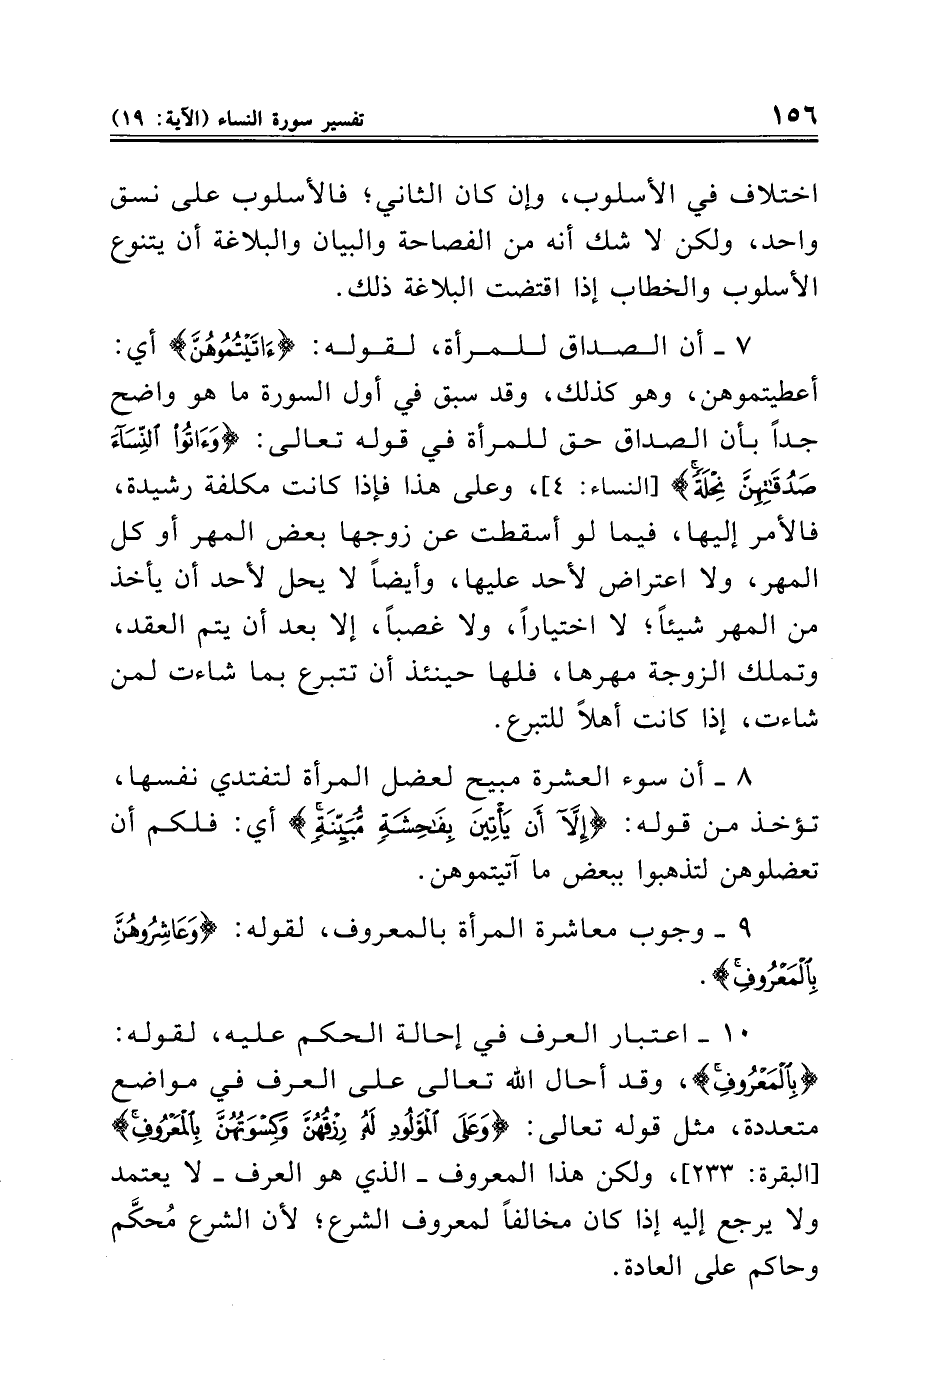 ١٥٦
تفسير سورة النساء (الآية: ١٩)
اختلاف في الأسلوب، وإن كان الثاني؛ فالأسلوب على نسق
واحد، ولكن لا شك أنه من الفصاحة والبيان والبلاغة أن يتنوع
الأسلوب والخطاب إذا اقتضت البلاغة ذلك.
٧ ـ أن الصداق للمرأة، لقوله: ﴿ءَاتَيْتُمُوهُنَّ﴾ أي:
أعطيتموهن، وهو كذلك، وقد سبق في أول السورة ما هو واضح
جداً بأن الصداق حق للمرأة في قوله تعالى: ﴿وَءَاتُوا۟ ٱلنِّسَآءَ
صَدُقَـٰتِهِنَّ نِحْلَةً ۚ﴾ [النساء: ٤]، وعلى هذا فإذا كانت مكلفة رشيدة،
فالأمر إليها، فيما لو أسقطت عن زوجها بعض المهر أو كل
المهر، ولا اعتراض لأحد عليها، وأيضاً لا يحل لأحد أن يأخذ
من المهر شيئاً؛ لا اختياراً، ولا غصباً، إلا بعد أن يتم العقد،
وتملك الزوجة مهرها، فلها حينئذ أن تتبرع بما شاءت لمن
شاءت، إذا كانت أهلاً للتبرع.
٨ ـ أن سوء العشرة مبيح لعضل المرأة لتفتدي نفسها،
تؤخذ من قوله: ﴿إِلَّآ أَن يَأْتِينَ بِفَـٰحِشَةٍ مُّبَيِّنَةٍ ۚ﴾ أي: فلكم أن
تعضلوهن لتذهبوا ببعض ما آتيتموهن.
٩ ـ وجوب معاشرة المرأة بالمعروف، لقوله: ﴿وَعَاشِرُوهُنَّ
بِٱلْمَعْرُوفِ ۚ﴾.
١٠ ـ اعتبار العرف في إحالة الحكم عليه، لقوله:
﴿بِٱلْمَعْرُوفِ ۚ﴾، وقد أحال الله تعالى على العرف في مواضع
متعددة، مثل قوله تعالى: ﴿وَعَلَى ٱلْمَوْلُودِ لَهُۥ رِزْقُهُنَّ وَكِسْوَتُهُنَّ بِٱلْمَعْرُوفِ ۚ﴾
[البقرة: ٢٣٣]، ولكن هذا المعروف ـ الذي هو العرف ـ لا يعتمد
ولا يرجع إليه إذا كان مخالفاً لمعروف الشرع؛ لأن الشرع مُحكَّم
وحاكم على العادة.